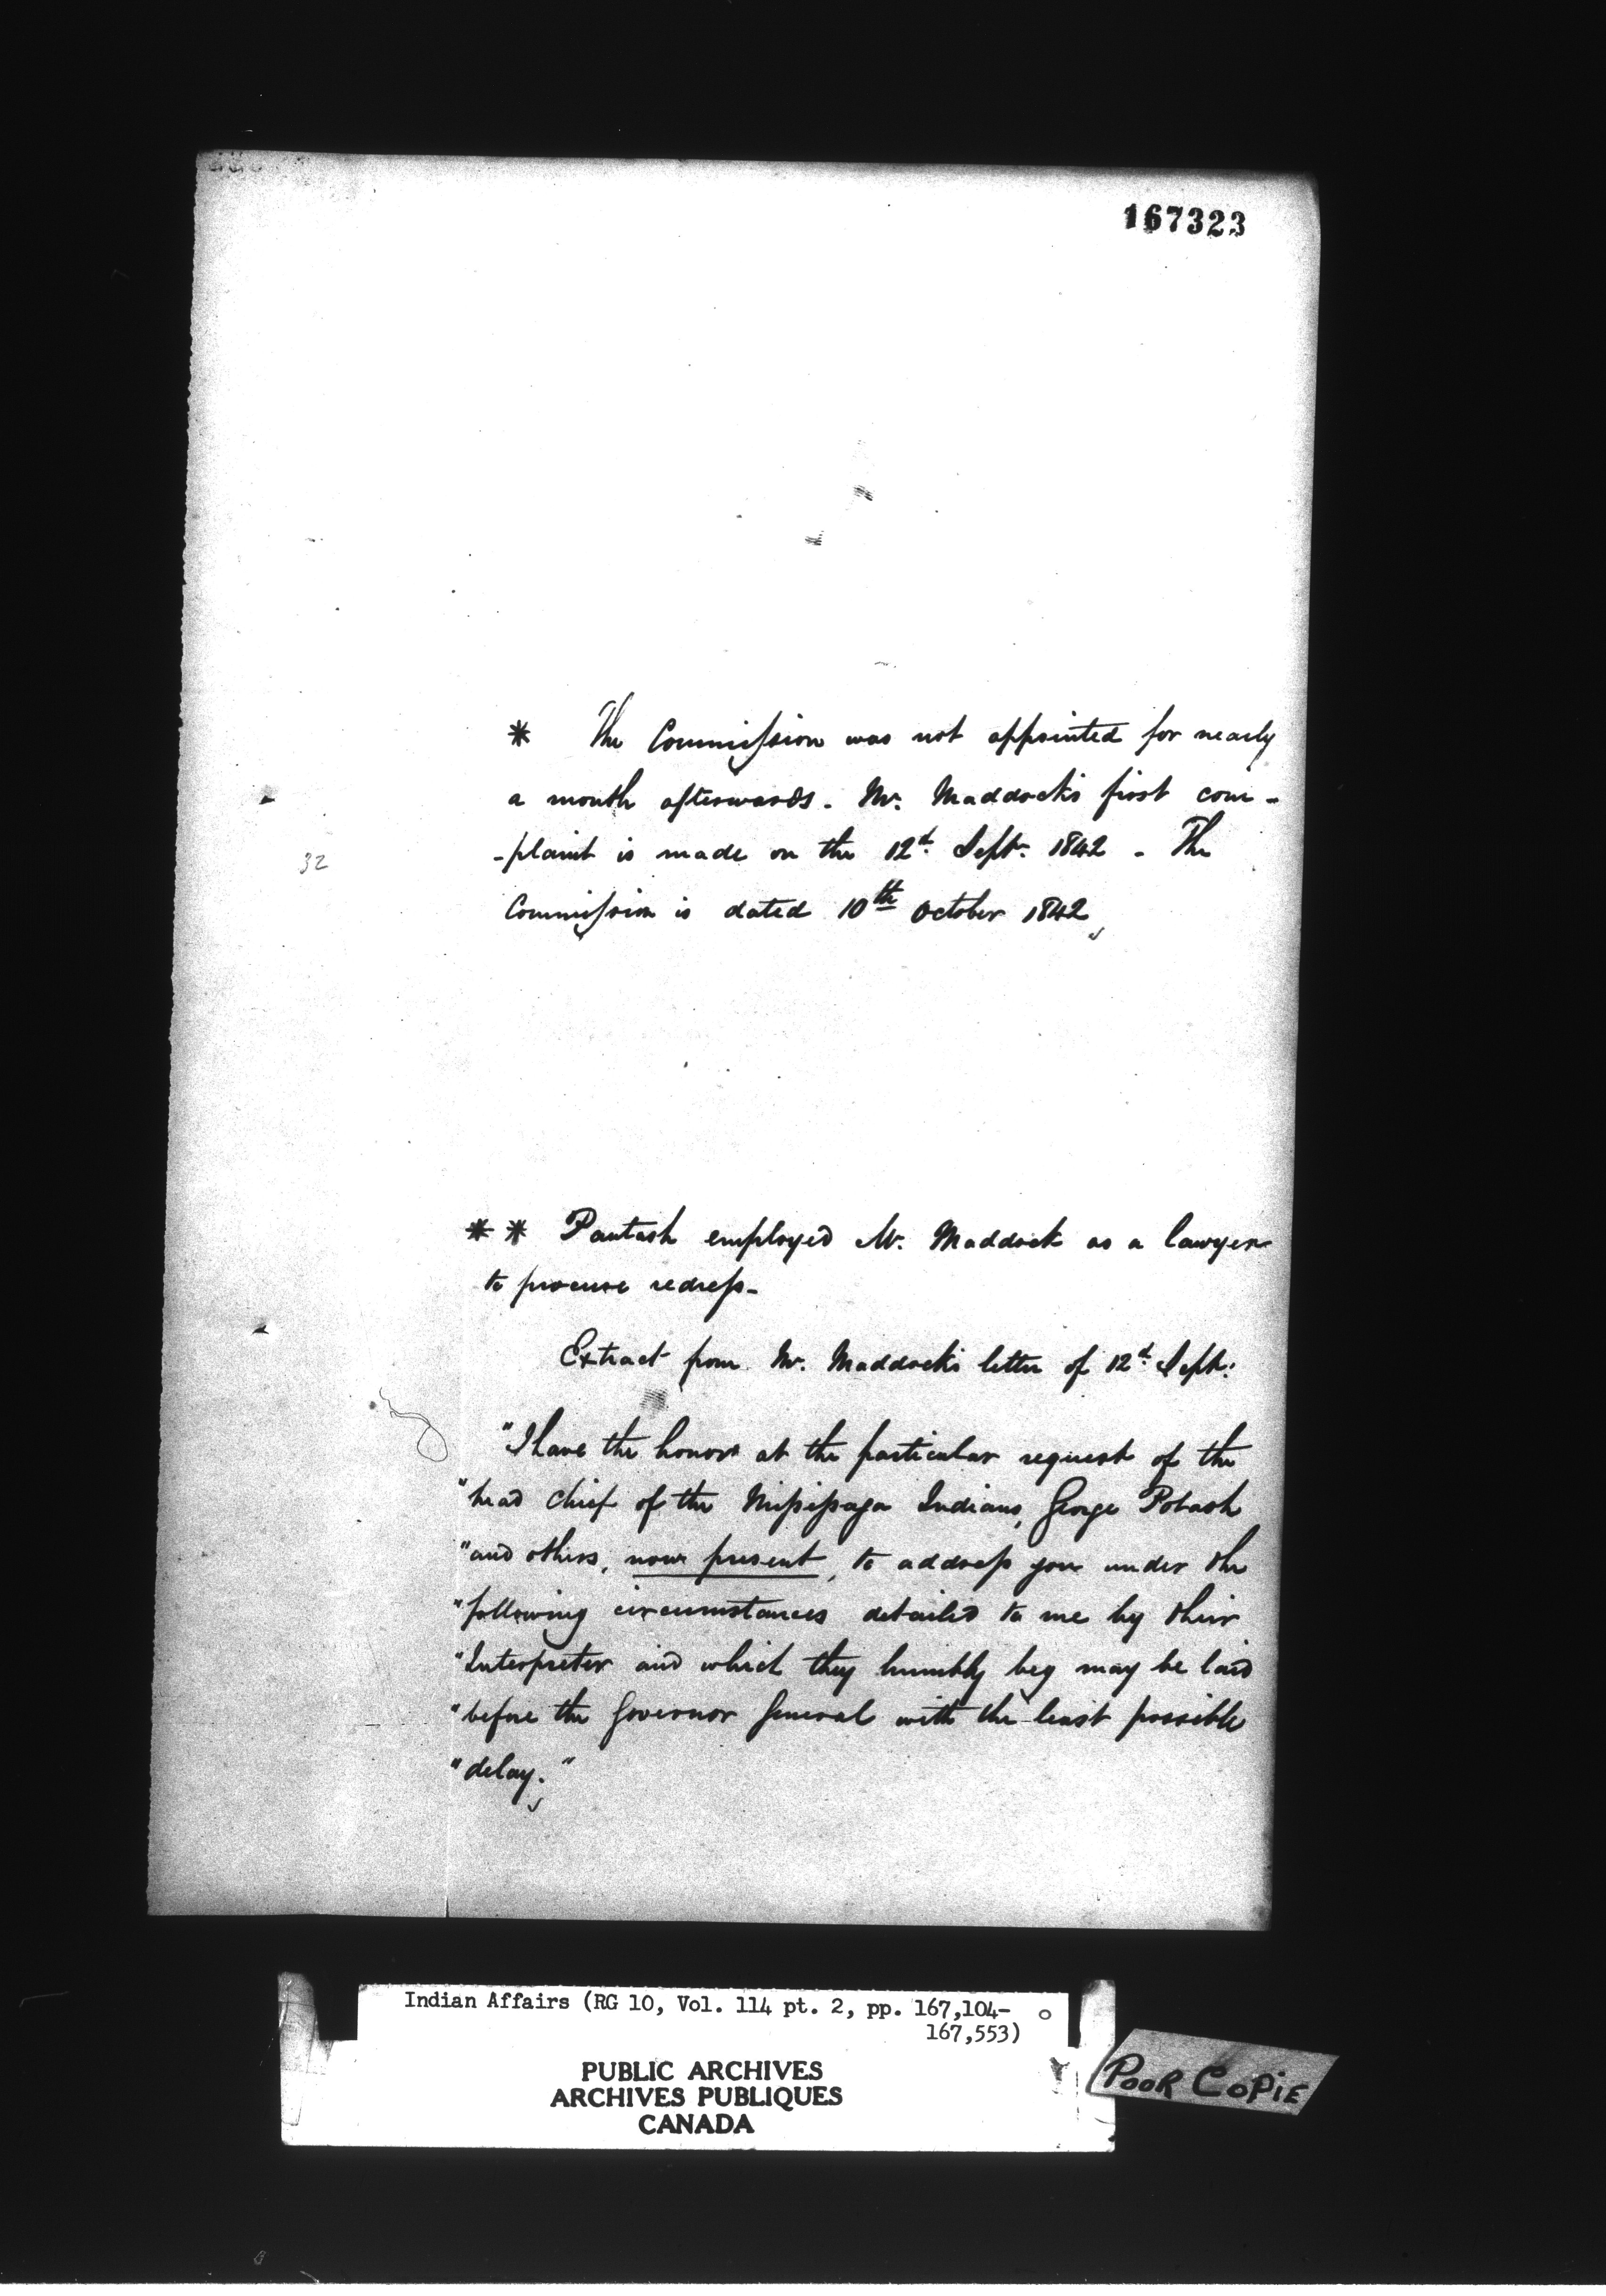 167323
* The Commission was not appointed for nearly
a month afterwards. Mr. Maddock's first com-
-plaint is made on the 12th. Sept. 1842 - The
32
Commission is dated 10th October 1842
** Pautash employed Mr. Maddock as a lawyer
to procure redress-
Extract from Mr. Maddock's letter of 12th. Sept:
"I have the honor at the particular request of the
"head Chief of the Missisaga Indians, George Potash
"and others, now present, to address you under the
"following circumstances detailed to me by their
"Interpreter and which they humbly beg may be laid
"before the Governor General with the least possible
"delay."
Indian Affairs (RG 10, Vol. 114 pt. 2, pp. 167,104-
167,553)
PUBLIC ARCHIVES
ARCHIVES PUBLIQUES
CANADA
POOR COPIE